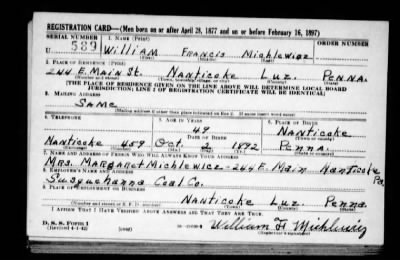 REGISTRATION CARD—(Men born on or after April 28, 1877 and on or before February 16, 1897)
SERIAL NUMBER 1. NAME (Print)
U 589 William Francis Michlewicz
(First) (Middle) (Last)
2. PLACE OF RESIDENCE (Print)
244 E. Main St. Nanticoke Luz. Penna.
(Number and street) (Town, township, village, or city) (County) (State)
[THE PLACE OF RESIDENCE GIVEN ON THE LINE ABOVE WILL DETERMINE LOCAL BOARD
JURISDICTION; LINE 2 OF REGISTRATION CERTIFICATE WILL BE IDENTICAL]
3. MAILING ADDRESS
Same
[Mailing address if other than place indicated on line 2. If same insert word same]
4. TELEPHONE 5. AGE IN YEARS 6. PLACE OF BIRTH
49 Nanticoke
DATE OF BIRTH (Town or county)
Nanticoke 459 Oct. 2 1892 Penna.
(Exchange) (Number) (Mo.) (Day) (Yr.) (State or country)
7. NAME AND ADDRESS OF PERSON WHO WILL ALWAYS KNOW YOUR ADDRESS
Mrs. Margaret Michlewicz-244 E. Main Nanticoke Pa.
8. EMPLOYER'S NAME AND ADDRESS
Susquehanna Coal Co.
9. PLACE OF EMPLOYMENT OR BUSINESS
Nanticoke Luz. Penna.
(Number and street or R. F. D. number) (Town) (County) (State)
I AFFIRM THAT I HAVE VERIFIED ABOVE ANSWERS AND THAT THEY ARE TRUE.
D. S. S. Form 1
(Revised 4-1-42) (over) William F. Michlewicz
(Registrant's signature)